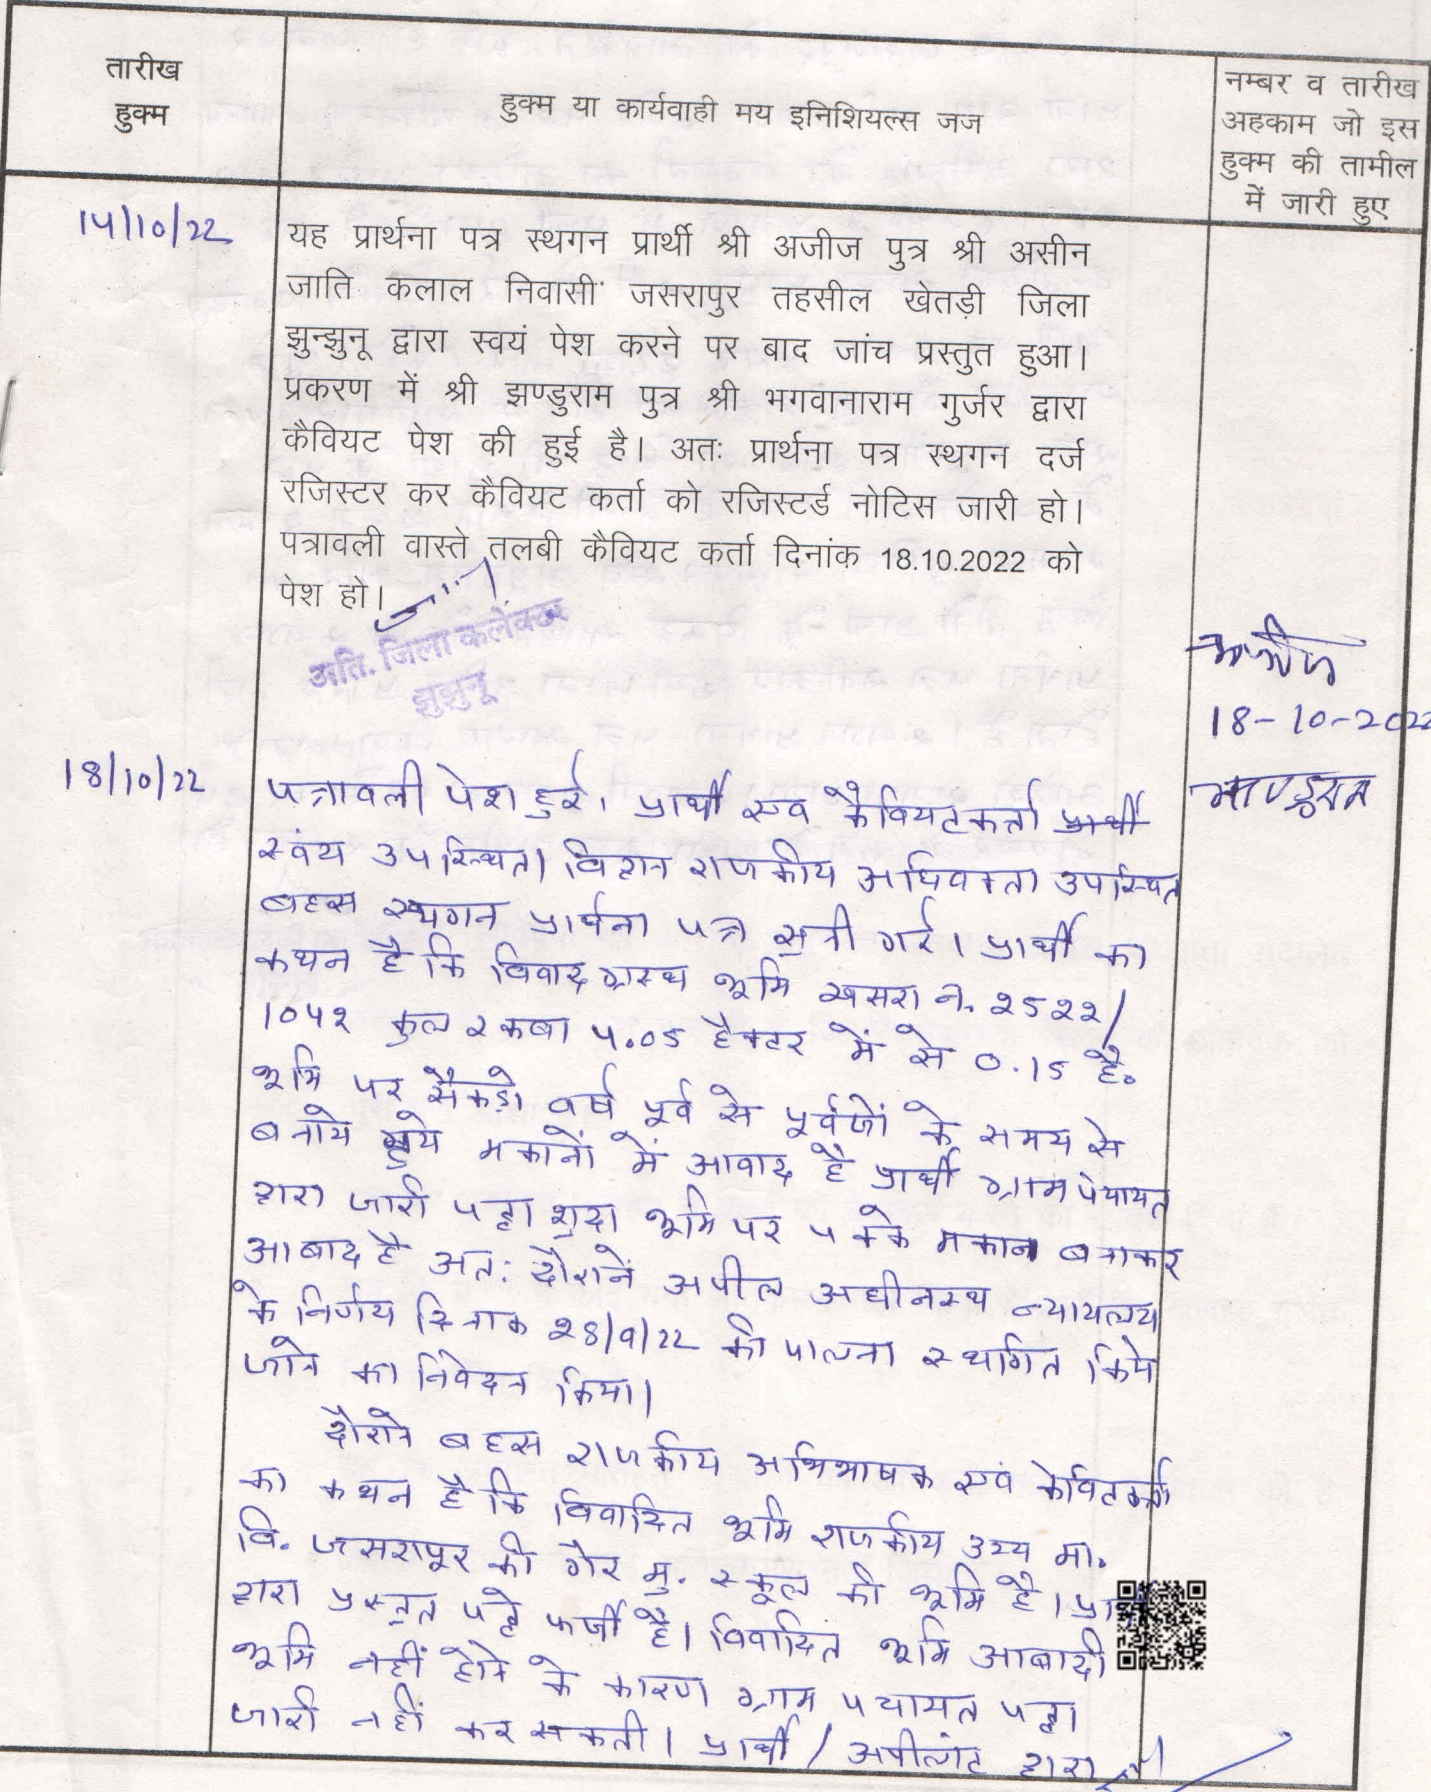 तारीख
हुक्म
हुक्म या कार्यवाही मय इनिशियल्स जज
नम्बर व तारीख
अहकाम जो इस
हुक्म की तामील
में जारी हुए
14/10/22
यह प्रार्थना पत्र स्थगन प्रार्थी श्री अजीज पुत्र श्री असीन
जाति कलाल निवासी जसरापुर तहसील खेतड़ी जिला
झुन्झुनू द्वारा स्वयं पेश करने पर बाद जांच प्रस्तुत हुआ।
प्रकरण में श्री झण्डुराम पुत्र श्री भगवानाराम गुर्जर द्वारा
कैवियट पेश की हुई है। अतः प्रार्थना पत्र स्थगन दर्ज
रजिस्टर कर कैवियट कर्ता को रजिस्टर्ड नोटिस जारी हो।
पत्रावली वास्ते तलबी कैवियट कर्ता दिनांक 18.10.2022 को
पेश हो।
अति. जिला कलेक्टर
झुझुनू
18-10-2022
18/10/22
पत्रावली पेश हुई। प्रार्थी एवं कैवियटकर्ता प्रार्थी
स्वंय उपस्थित। विद्वान राजकीय अधिवक्ता उपस्थित
बहस स्थगन प्रार्थना पत्र सुनी गई। प्रार्थी का
कथन है कि विवादग्रस्थ भूमि खसरा नं. २5२२/
104२ कुल रकबा 4.05 हैक्टर में से 0.15 है.
भूमि पर सैकडो वर्ष पूर्व से पूर्वजों के समय से
बनाये हुये मकानों में आवाद है प्रार्थी ग्राम पंचायत
द्वारा जारी पट्टा शुदा भूमि पर पक्के मकान बनाकर
आबाद है अतः दौराने अपील अधीनस्थ न्यायालय
के निर्णय दिनांक २8/9/22 की पालना स्थगित किये
जाने का निवेदन किया।
दौराने बहस राजकीय अभिभाषक एवं केविटकर्ता
का कथन है कि विवादित भूमि राजकीय उच्य मा.
वि. जसरापुर की गैर मु. स्कूल की भूमि है।
द्वारा प्रस्तुत पट्टे फर्जी है। विवादित भूमि आबादी
भूमि नहीं होने के कारण ग्राम पंचायत पट्टा
जारी नहीं कर सकती। प्रार्थी / अपीलांट द्वारा